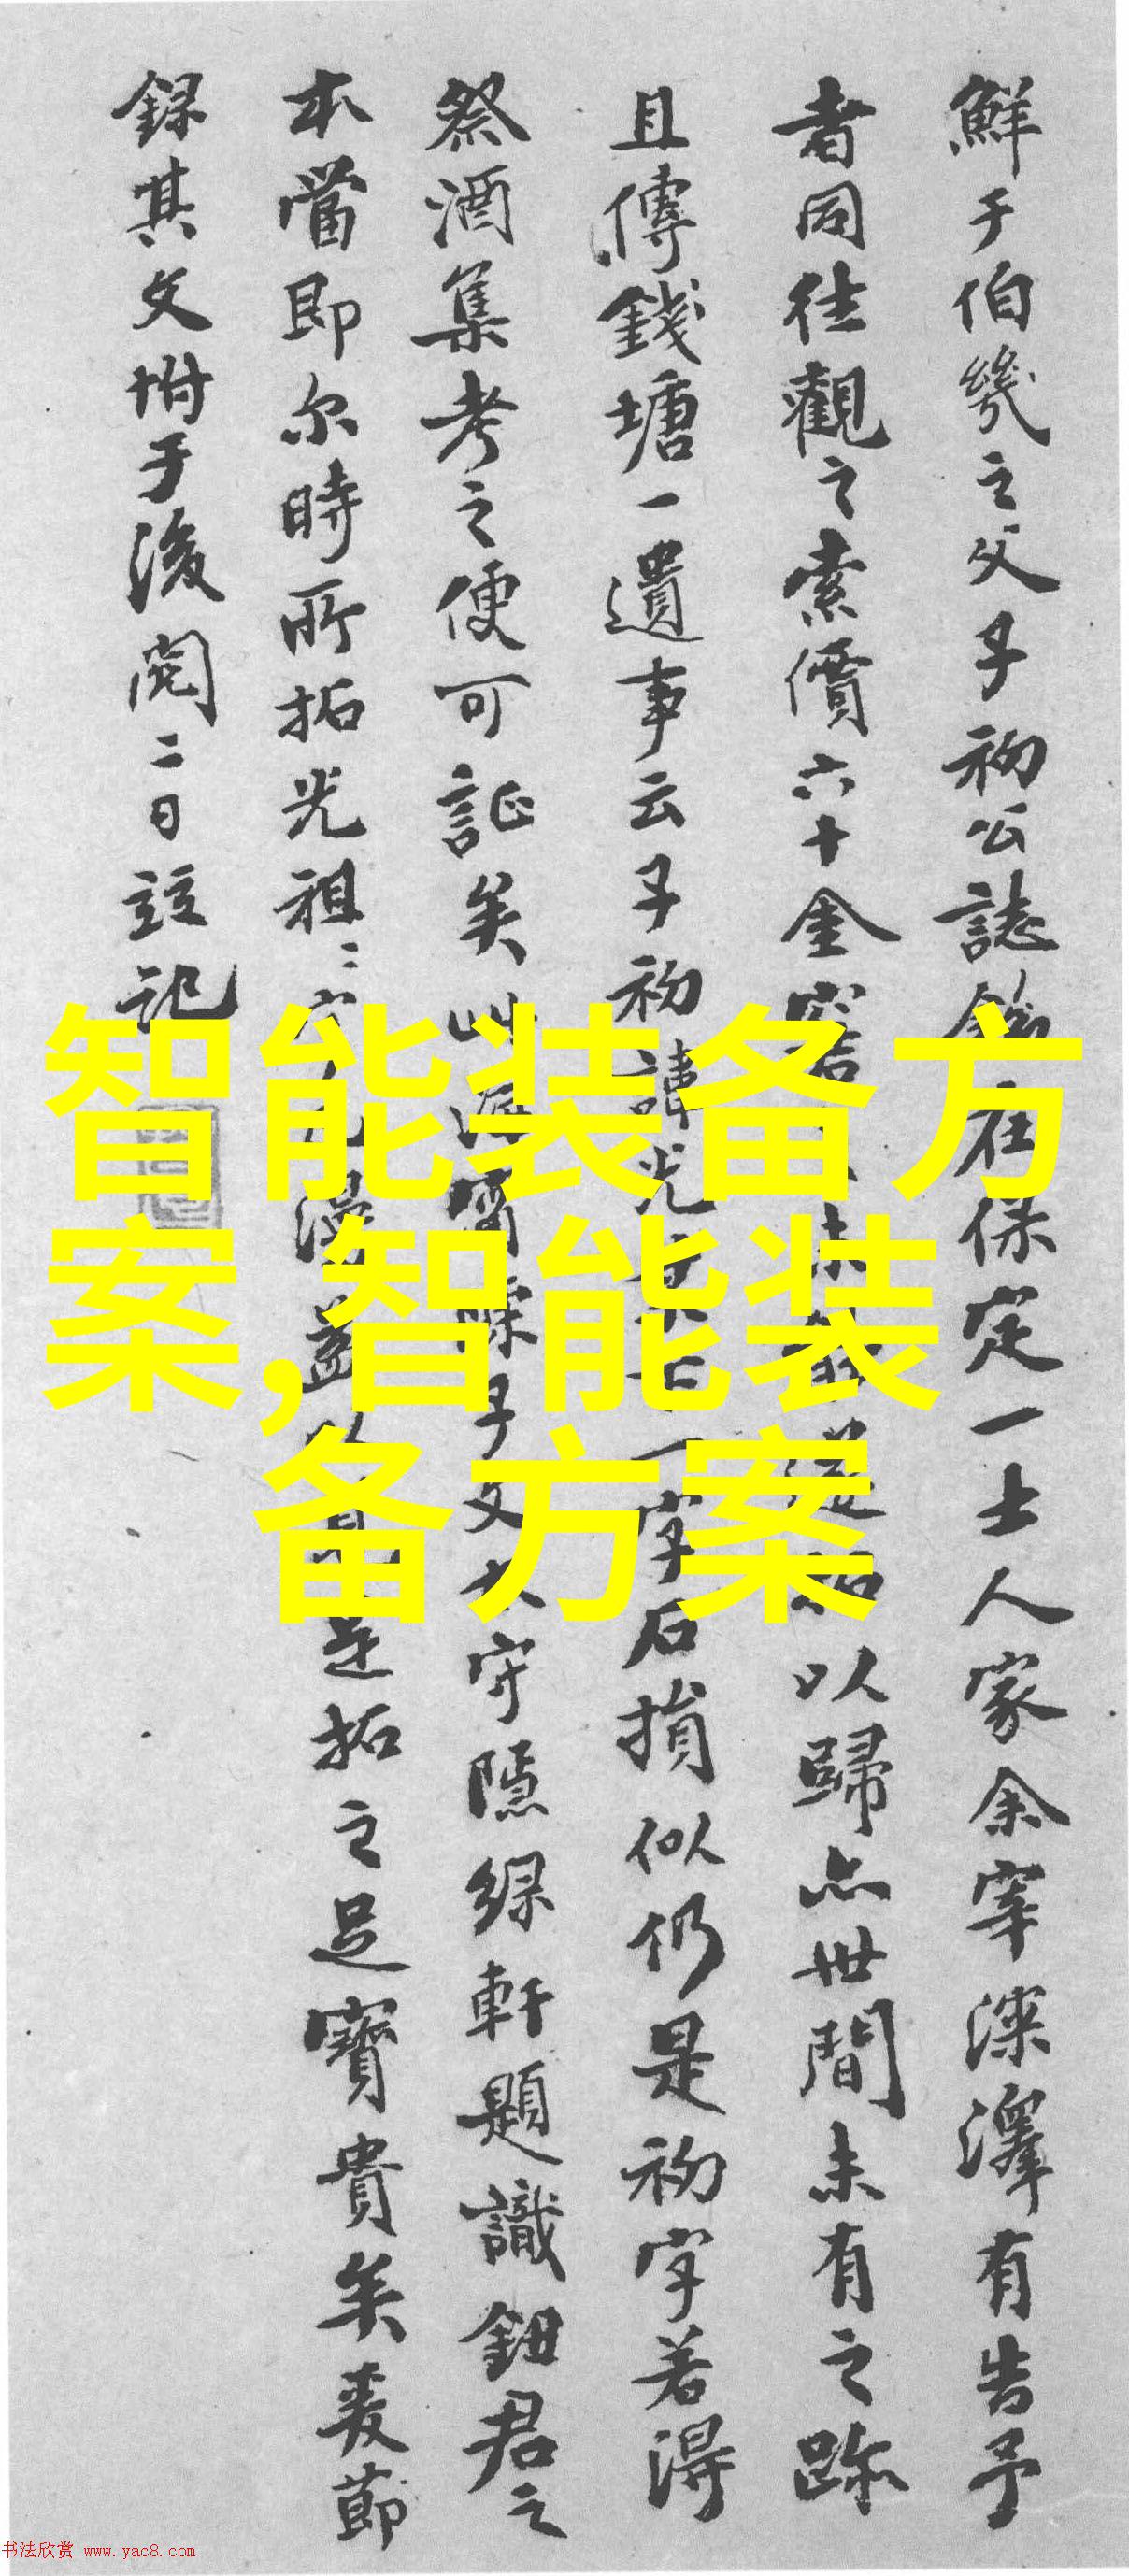 鮮于伯幾之父子初公誌銘在保定一士人家余宰深澤有告予
者同往觀之索價六十金以歸亦世間未有之跡
且傳錢塘一遺事云子初諱光一字石損似仍是初字若得
祭酒集考之便可証矣子文太守隱綠軒題識鈕君之
本當即尔時所拓光祖:是拓之足寶貴矣爰節
錄其文坿于後閏二日記
智能装备方
案,智能装
备方案
书法欣赏 www.yac8.com